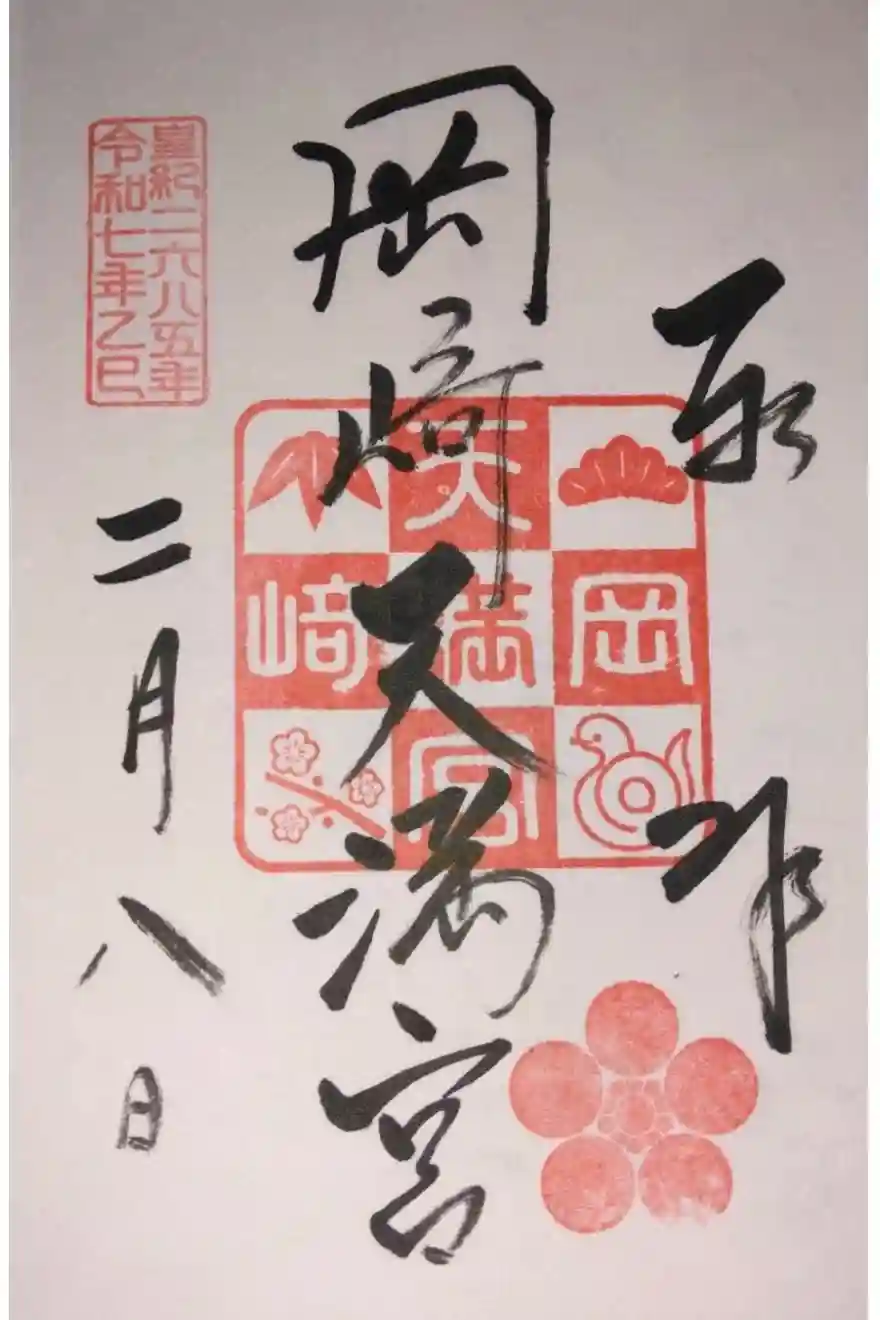 奉拝
岡﨑天満宮
岡﨑
天満宮
皇紀二六八五年
令和七年乙巳
二月八日